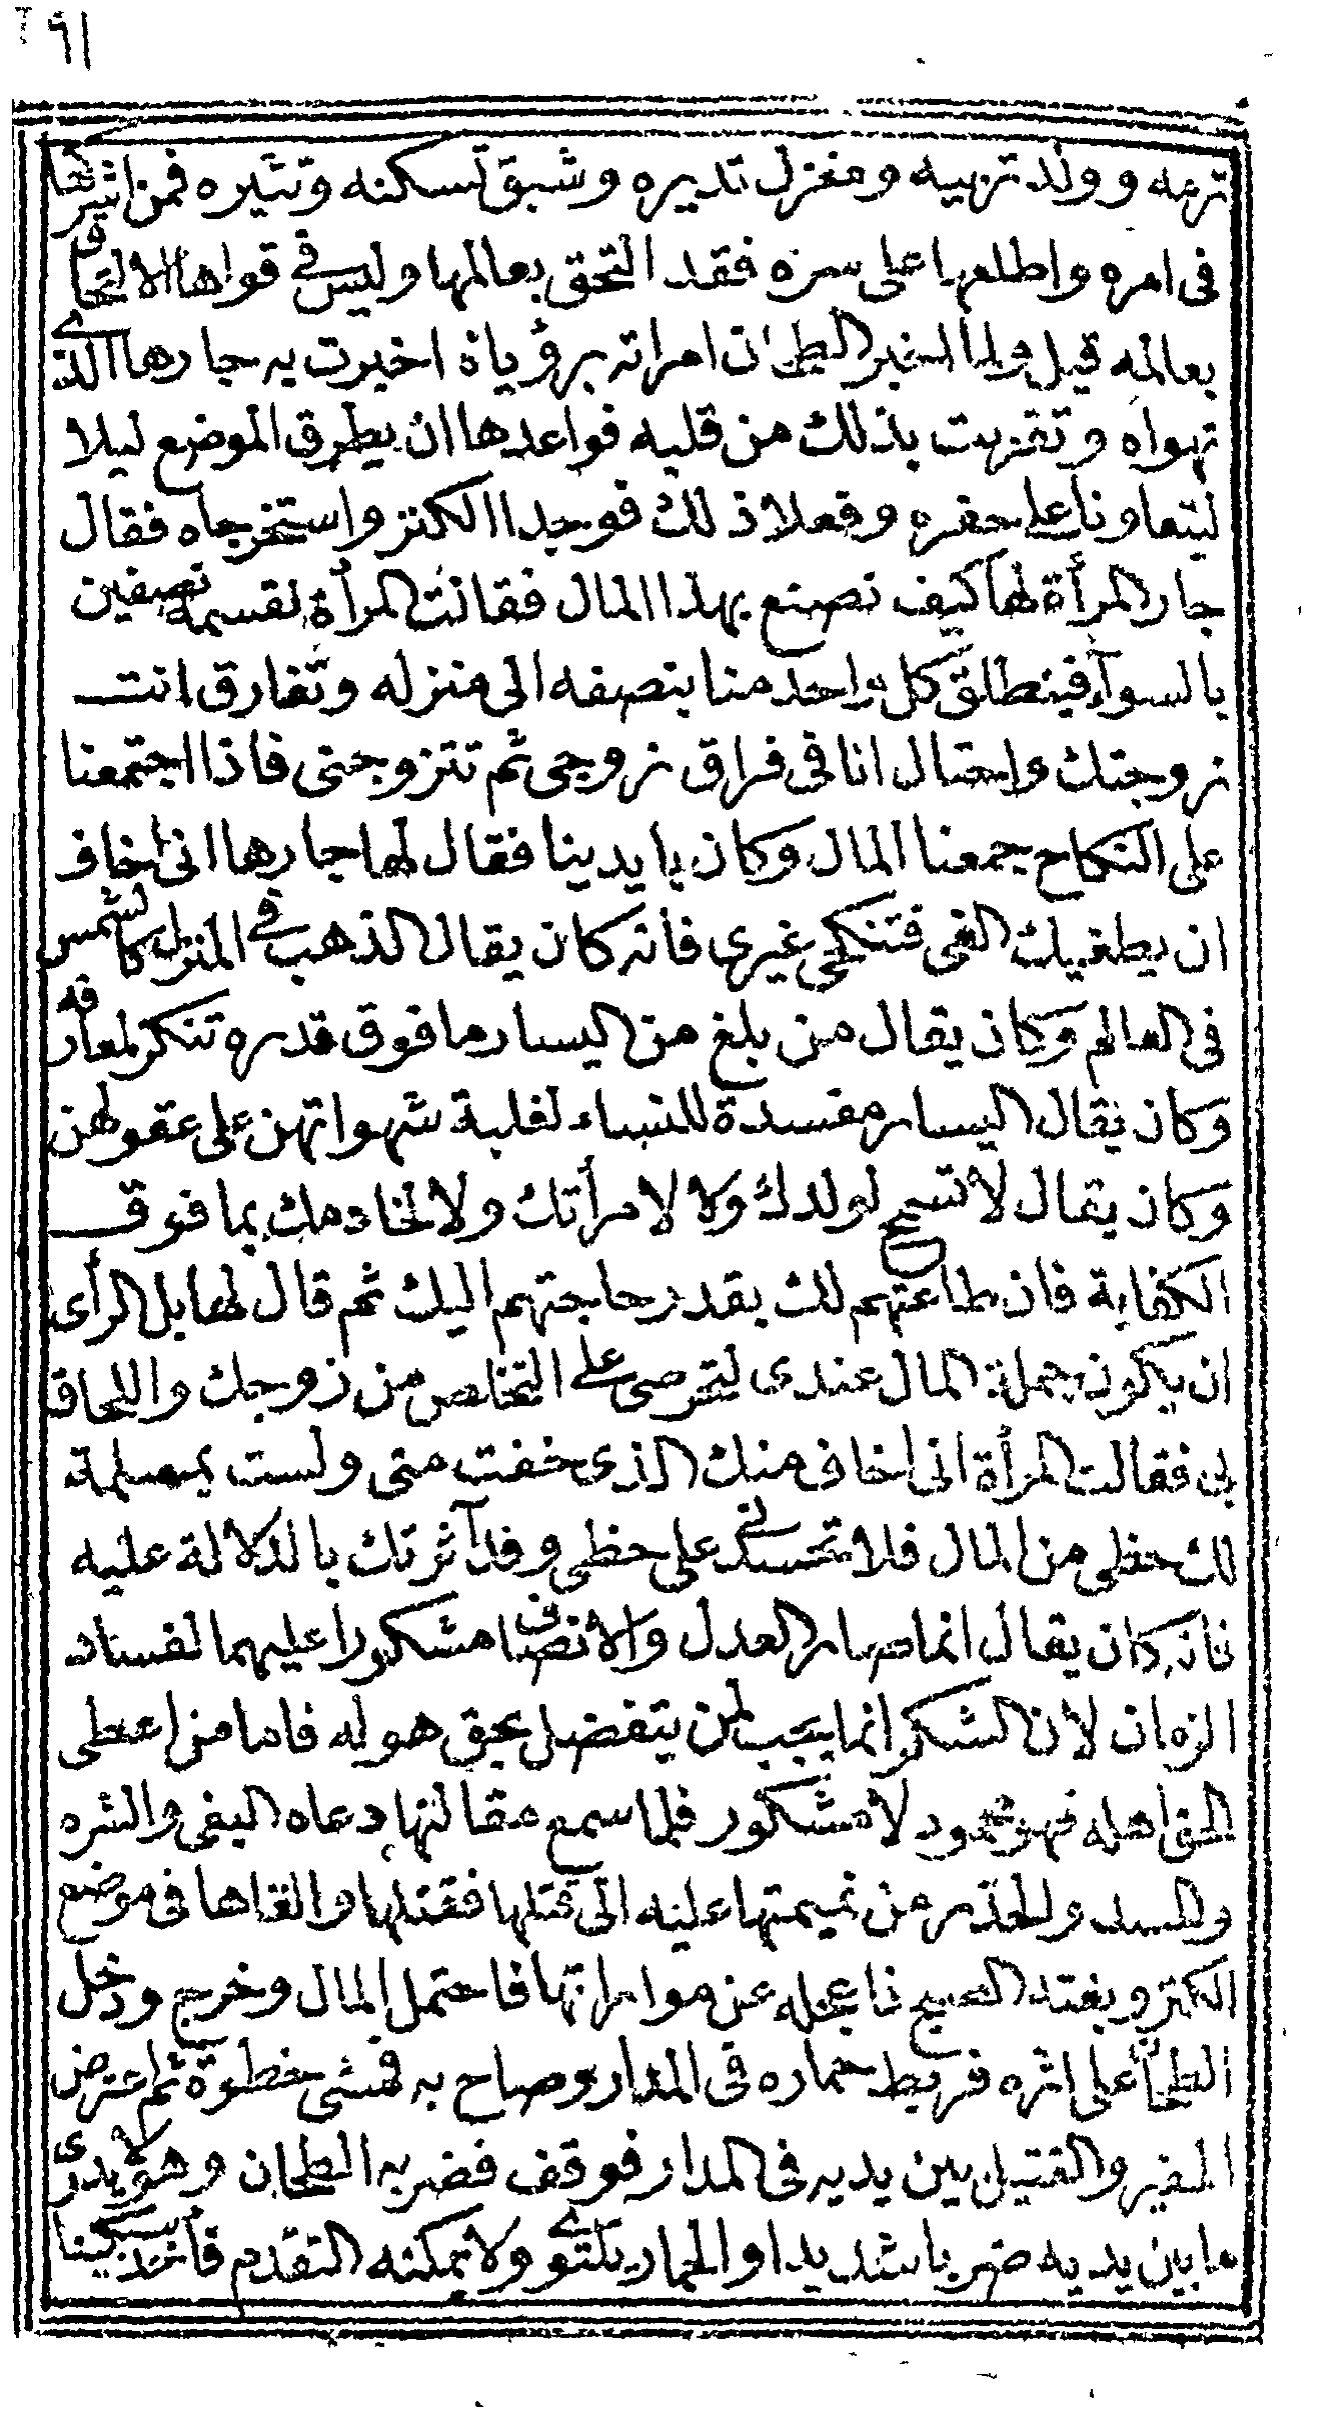 ٩١
ترمه وولد تربيه ومغزل تديره وشبق تسكنه وتثيره فمن اشركها
فى امره واطلعها على سره فقد التحق بعالمها وليس في قواها الالتحاق
بعالمه قيل ولما اخبر الطحان امراته برؤياه اخبرت به جارها الذى
تهواه وتقربت بذلك من قلبه فواعدها ان يطرق الموضع ليلا
ليتعاونا على حفره وفعلا ذلك فوجدا الكنز واستخرجاه فقال
جار المرأة لها كيف نصنع بهذا المال فقالت المرأة نقسمه نصفين
بالسوآء فينطلق كل واحد منا بنصفه الى منزله وتفارق انت
زوجتك واحتال انا فى فراق زوجى ثم تتزوجنى فاذا اجتمعنا
على النكاح جمعنا المال وكان بايدينا فقال لها جارها انى اخاف
ان يطغيك الغى فتنكحى غيرى فانه كان يقال الذهب في المنزل كالشمس
فى العالم وكان يقال من بلغ من اليسار ما فوق قدره تنكر لمعارفه
وكان يقال اليسار مفسدة للنساء لغلبة شهواتهن على عقولهن
وكان يقال لا تسمح لولدك ولا لامرأتك ولا لخادمك بما فوق
الكفاية فان طاعتهم لك بقدر حاجتهم اليك ثم قال لها بل الرأى
ان يكون جملة المال عندى لتحرصى على التخلص من زوجك واللحاق
بى فقالت المرأة انى اخاف منك الذى خفت منى ولست بمسلمة
لك حظى من المال فلا تحسدنى على حظى وقد آثرتك بالدلالة عليه
فانه كان يقال انما صار العدل والانصاف مشكورا عليهما لفساد
الزمان لان الشكر انما يجب لمن يتفضل بحق هو له فاما من اعطى
الحق اهله فهو محمود لا مشكور فلما سمع مقالتها دعاه البغى والشره
والحسد والحذر من نميمتها عليه الى قتلها فقتلها والقاها فى موضع
الكنز وبغته الصبح فاعجله عن مواراتها فاحتمل المال وخرج ودخل
الطحان على اثره فربط حماره فى المدار وصاح به فمشى خطوة ثم اعترض
الحفير والقتيل بين يديه فى المدار فوقف فضربه الطحان وهو لا يدرى
ما بين يديه ضربا شديدا والحمار يلتوى ولا يمكنه التقدم فأخذ سكينا